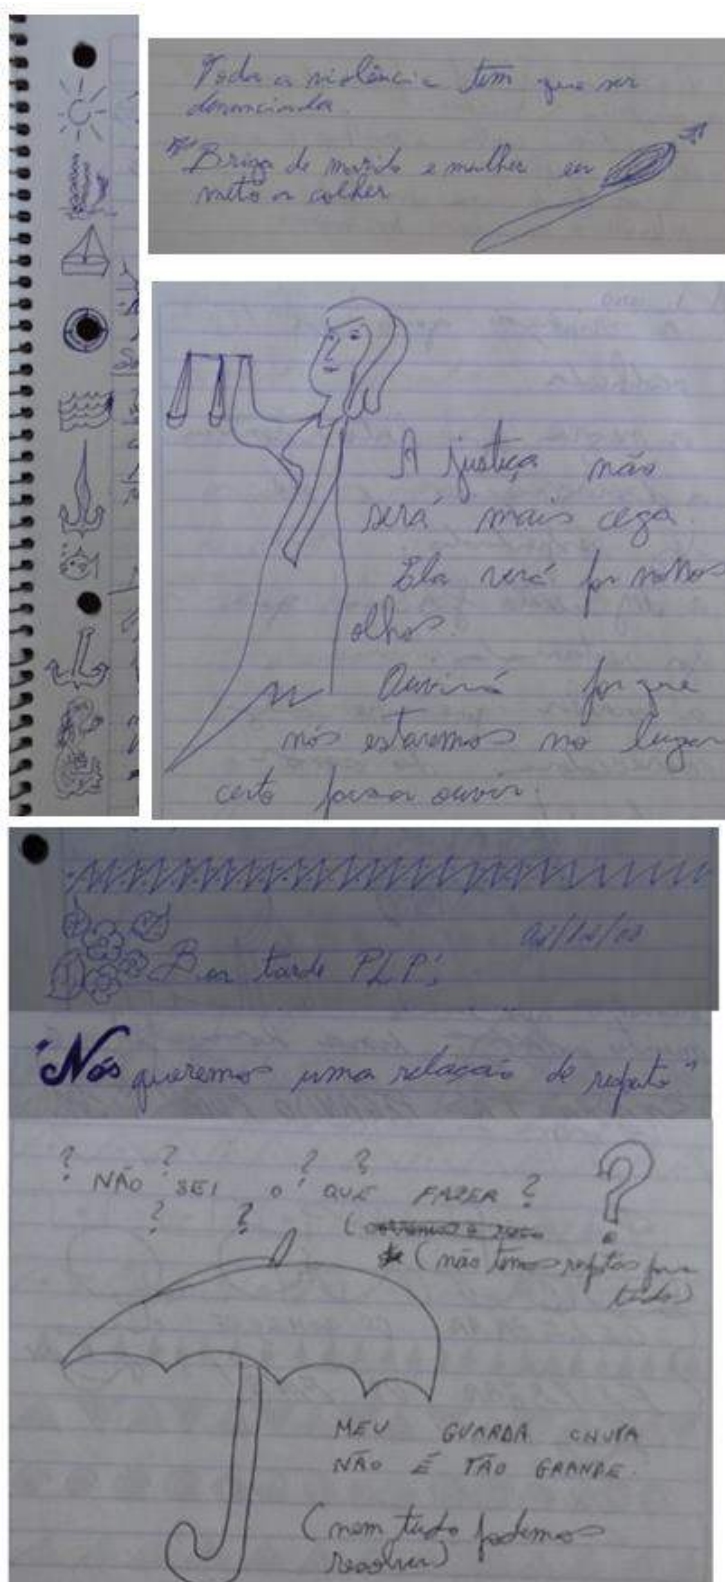 Toda a violência tem que ser
denunciada.
"Briga de marido e mulher eu
meto a colher "
A justiça não
será mais cega.
Ela verá por nossos
olhos.
Ouvirá porque
nós estaremos no lugar
certo para ouvir.
Boa tarde PLP's
"Nós queremos uma relação de respeito"
? ? ? ?
NÃO SEI O QUE FAZER ? ?
? ?
(não temos respostas para
tudo)
MEU GUARDA CHUVA
NÃO É TÃO GRANDE.
(nem tudo podemos
resolver)